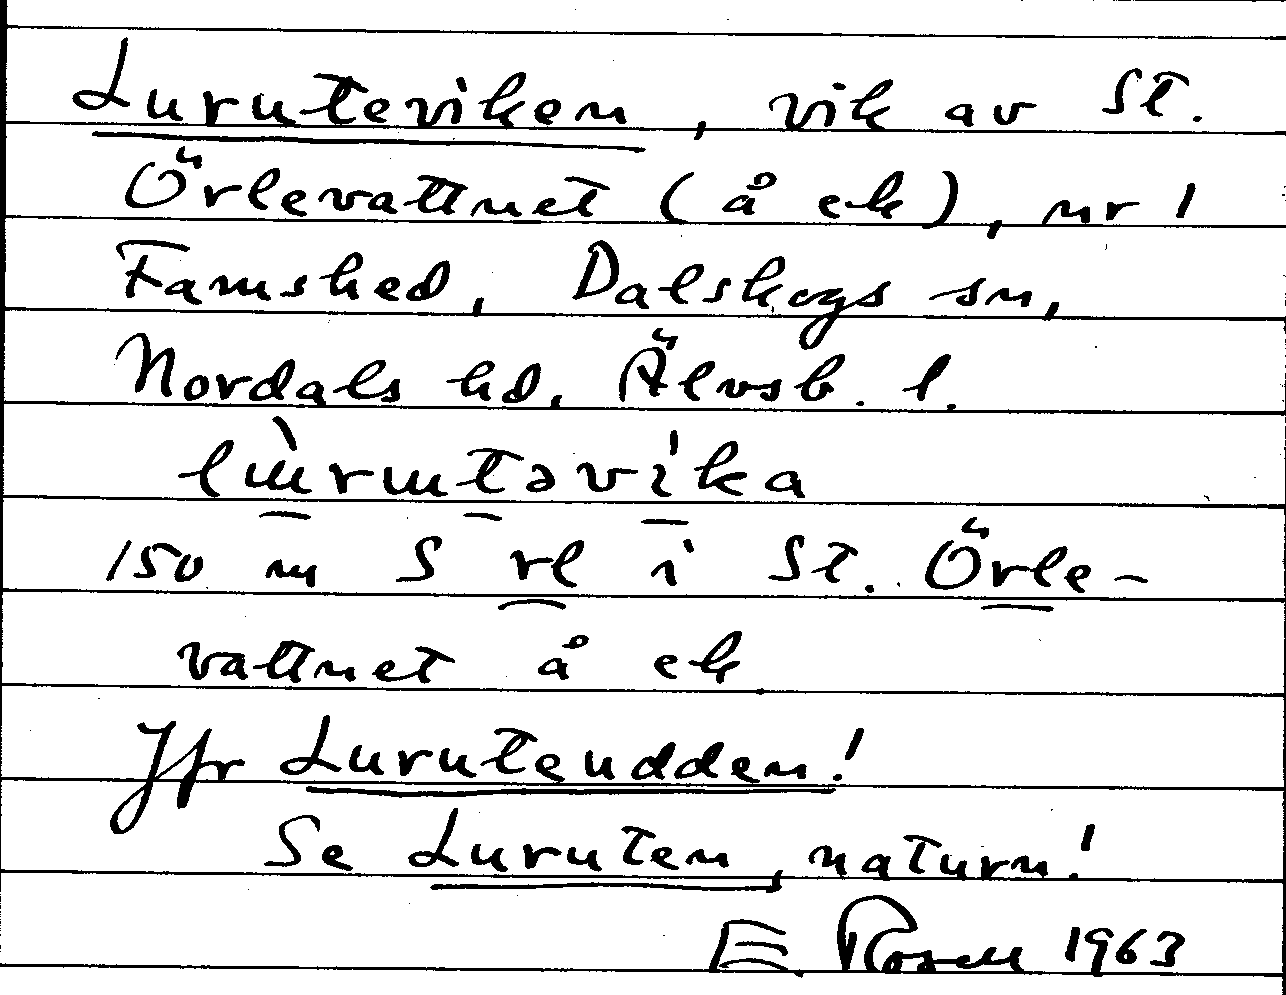 Luruteviken, vik av St.
Örlevattnet (å ek), nr 1
Famshed, Dalskogs sn,
Nordals hd. Älvsb. l.
lɯ̀rɯtəvíka
150 m S rl i St. Örle-
vattnet å ek
Jfr Luruteudden!
Se Luruten, naturn!
E. Rosell 1963